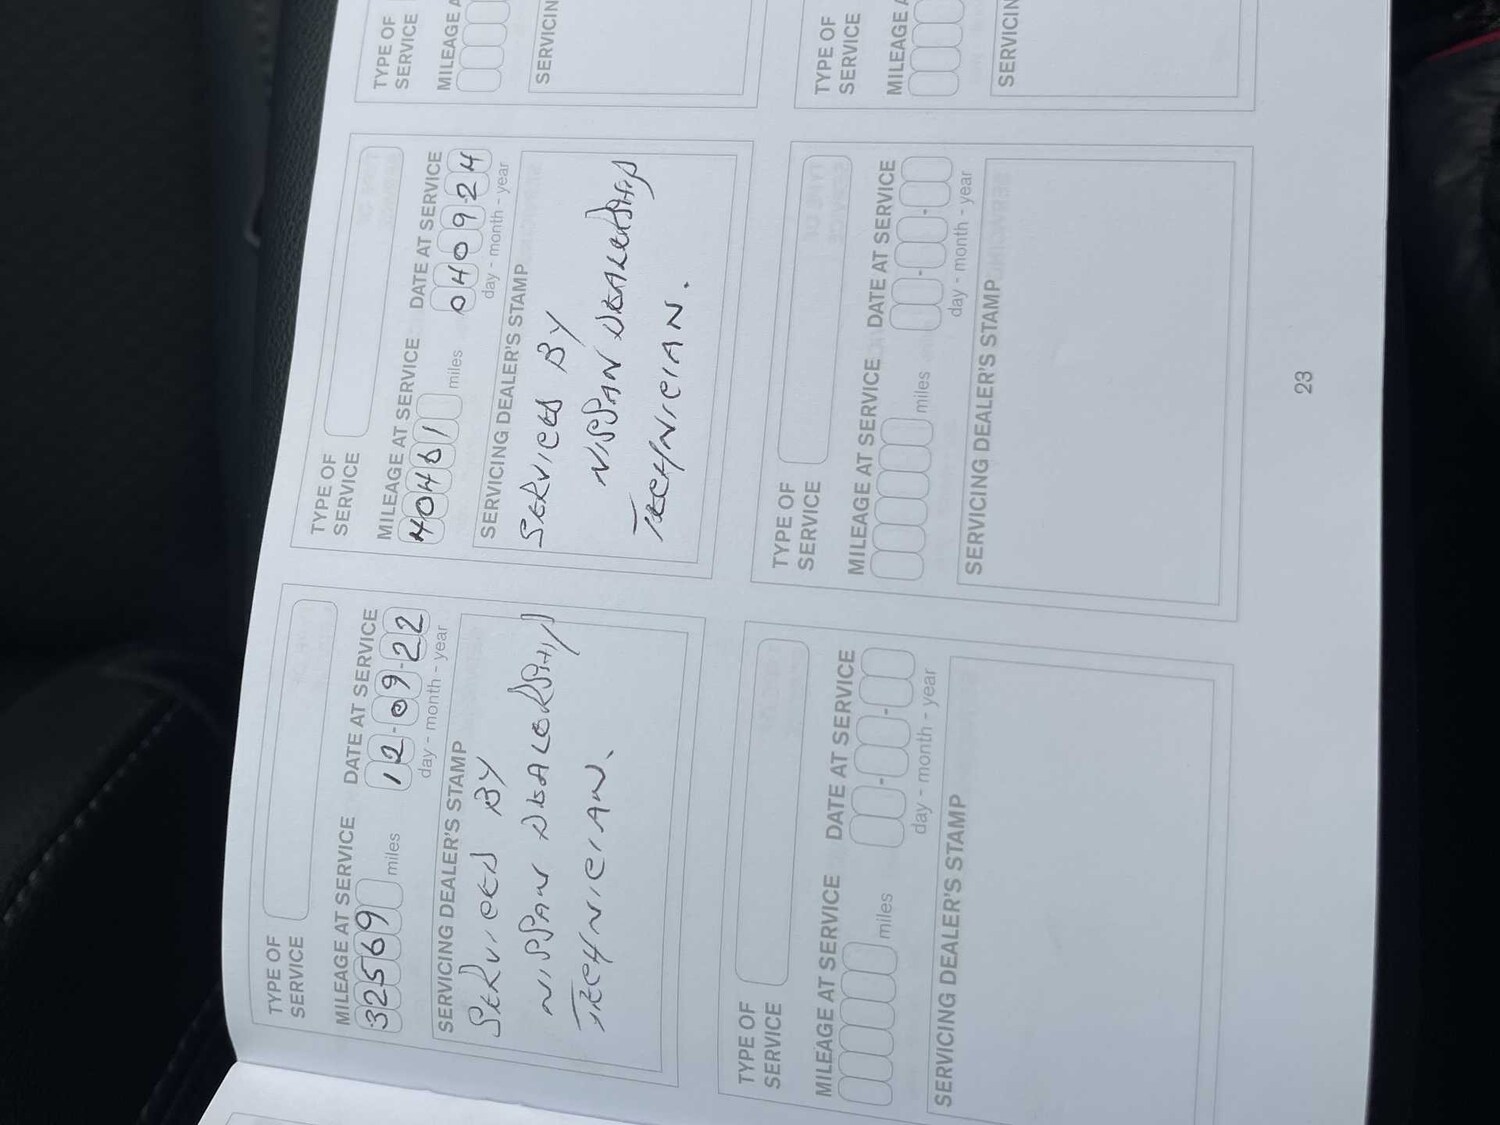 TYPE OF
SERVICE
MILEAGE AT SERVICE DATE AT SERVICE
32569 miles 12-09-22
day - month - year
SERVICING DEALER'S STAMP
SERVICED BY
NISSAN DEALERSHIP
TECHNICIAN.
TYPE OF
SERVICE
MILEAGE AT SERVICE DATE AT SERVICE
40461 miles 040924
day - month - year
SERVICING DEALER'S STAMP
SERVICED BY
NISSAN DEALERSHIP
TECHNICIAN.
TYPE OF
SERVICE
MILEAGE A
SERVICIN
TYPE OF
SERVICE
MILEAGE AT SERVICE DATE AT SERVICE
miles
day - month - year
SERVICING DEALER'S STAMP
TYPE OF
SERVICE
MILEAGE AT SERVICE DATE AT SERVICE
miles
day - month - year
SERVICING DEALER'S STAMP
TYPE OF
SERVICE
MILEAGE A
SERVICIN
23